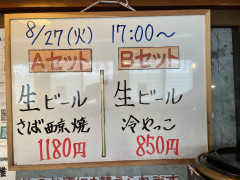 8/27(火) 17:00〜
Aセット
生ビール
さば西京焼
1180円
Bセット
生ビール
冷やっこ
850円